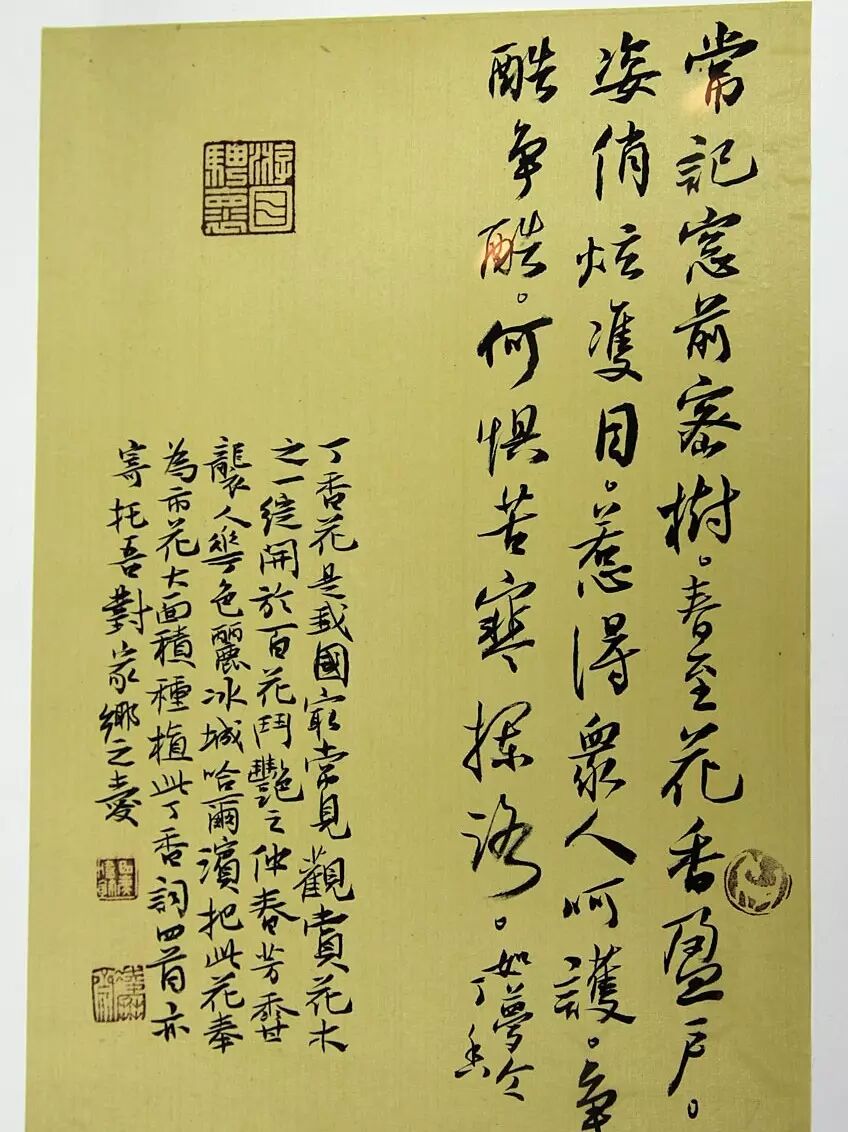 常記窓前密樹。春至花香盈戶。
姿俏炫雙目。惹得衆人呵護。争
酷争酷。何惧苦寒探路。如夢令
丁香
丁香花是我國冣常見觀賞花木
之一綻開於百花鬥艷之仲春芳香
襲人華色麗冰城哈爾濱把此花奉
為市花大面積種植此丁香詞四首亦
寄托吾對家鄉之愛
游目騁懷